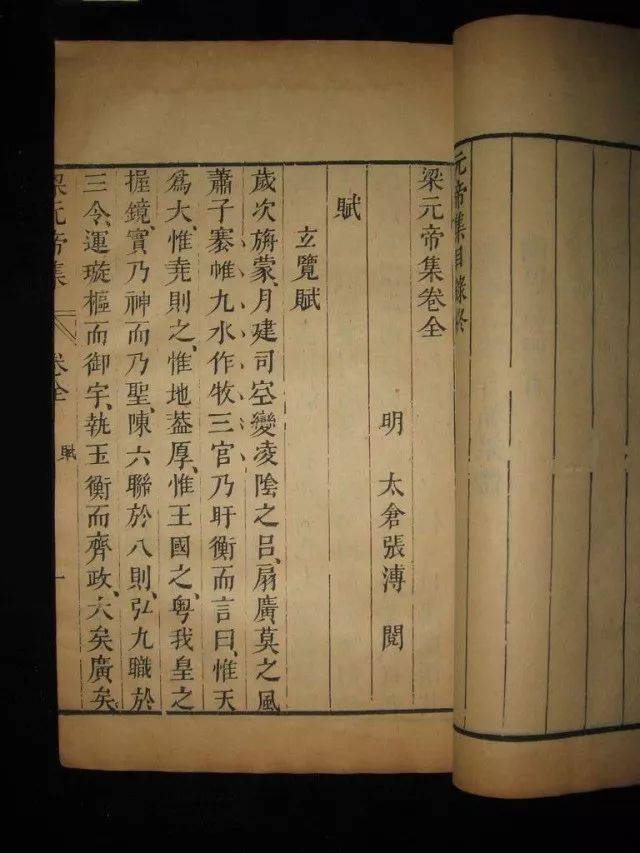 元帝集目錄終
梁元帝集卷全
明　太倉張溥　閱
賦
玄覽賦
歲次旃蒙、月建司空、變凌陰之呂、扇廣莫之風
蕭子褰帷九水作牧三官乃盱衡而言曰、惟天
爲大、惟堯則之、惟地蓋厚、惟王國之、粵我皇之
握鏡、實乃神而乃聖、陳六聯於八則、弘九職於
三令、運璇樞而御宇、執玉衡而齊政、大矣廣矣
梁元帝集
卷全
賦
一